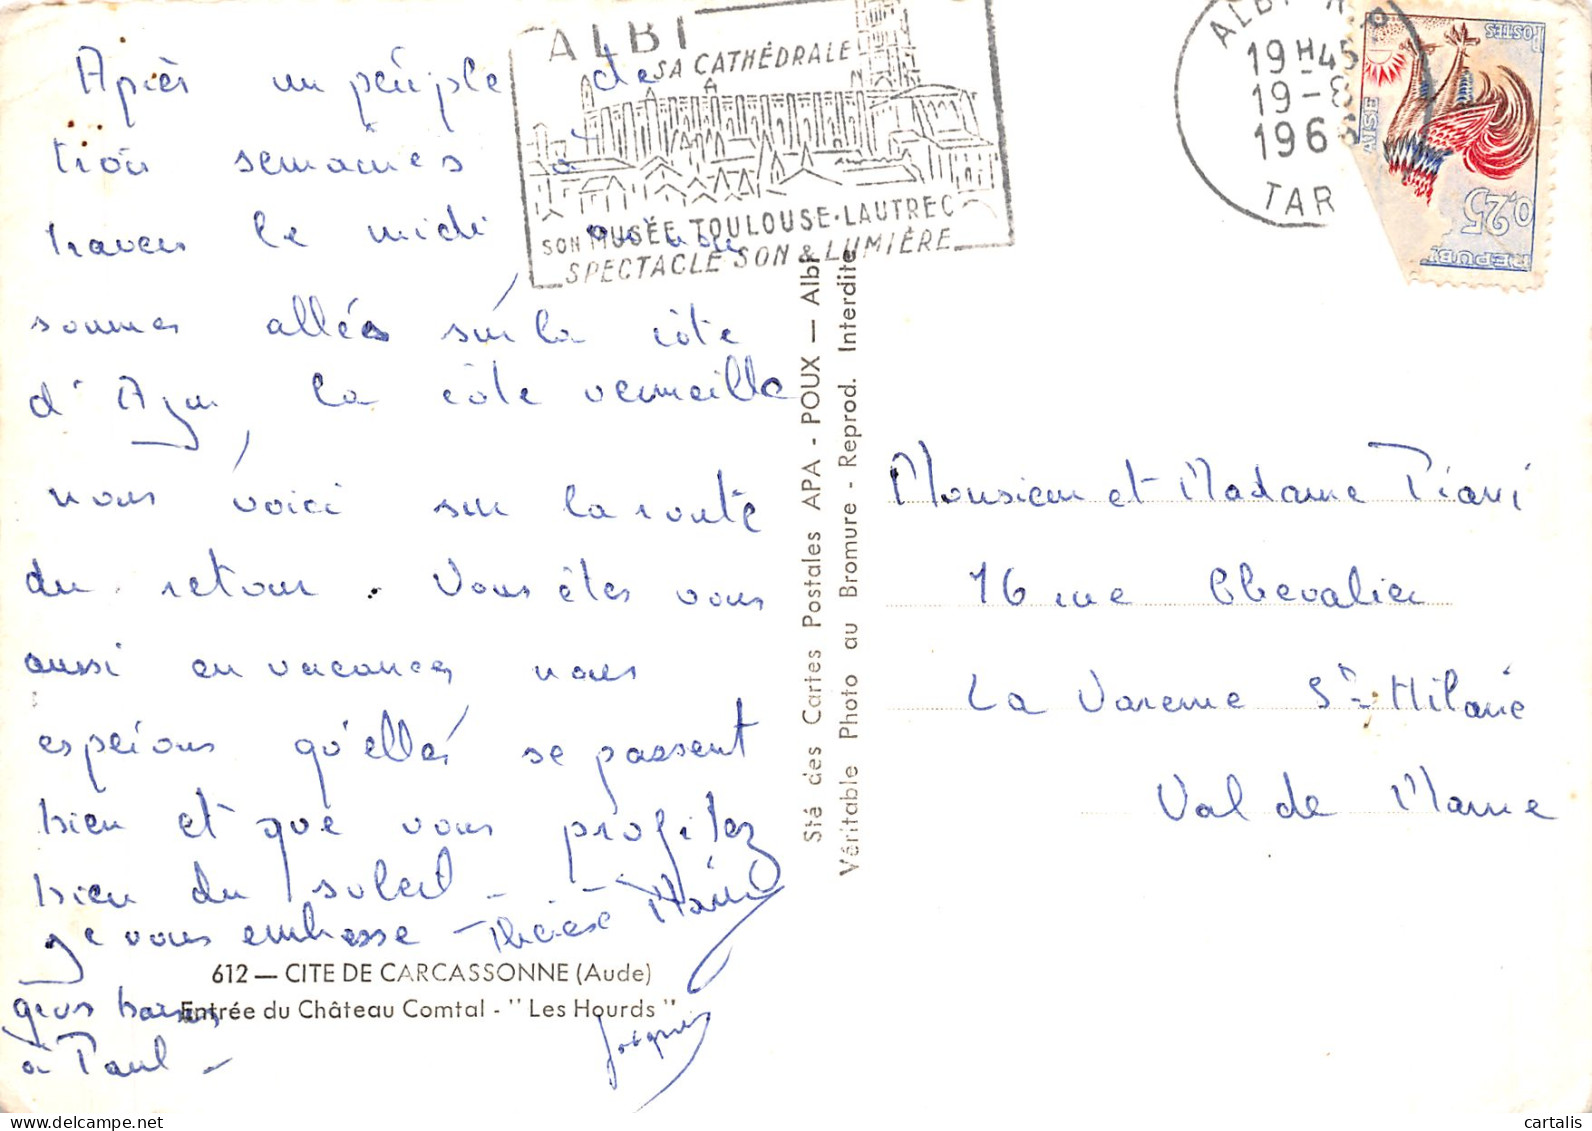 Après un périple de
trois semaines à
travers le midi où nous
sommes allés sur la côte
d'Azur, la côte vermeille
nous voici sur la route
du retour. Vous êtes vous
aussi en vacances, nous
espérons qu'elles se passent
bien et que vous profitez
bien du soleil -
Je vous embrasse - Thérèse Marie
gros baisers
à Paul -
Jacques
612 — CITE DE CARCASSONNE (Aude)
Entrée du Château Comtal - " Les Hourds "
ALBI
SA CATHÉDRALE
SON MUSÉE TOULOUSE-LAUTREC
SPECTACLE SON & LUMIÈRE
Sté des Cartes Postales APA - POUX — Albi
Véritable Photo au Bromure - Reprod. Interdite
ALBI
19 H 45
19 - 8
196
TAR
POSTES
AISE
0,25
REPUB
Monsieur et Madame
16 rue Chevalier
La Varenne St Hilaire
Val de Marne
cartalis